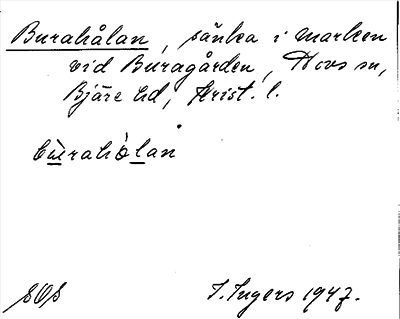 Burahålan, sänka i marken
vid Buragården, Hovs sn,
Bjäre hd, Krist. l.
bùrahòlan
SOS I. Ingers 1947.